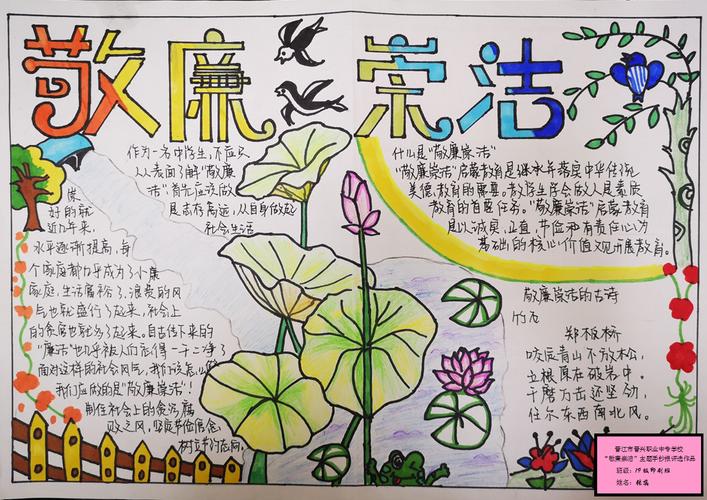 敬廉崇洁
作为一名中学生,不应只
从表面了解“敬廉
洁”首先应该做
是志存高远,从自身做起
社会生活
家
好的就
近几年来,
水平逐渐提高,每
个家庭都几乎成为了小康
家庭,生活富裕了,浪费的风
气也就盛行了起来,社会上
的贪腐也就多了起来。自古传下来的
“廉洁”也几乎被人们忘得一干二净了
面对这样的社会风气,我们该怎么做
我们应做的是“敬廉崇洁”!
制住社会上的贪污腐
败之风,坚实节俭信念,
树文节约花网。
什么是“敬廉崇洁”
“敬廉崇洁”启蒙教育是继承并落实中华传统
美德教育的需要。教学生学会做人是素质
教育的首要任务。“敬廉崇洁”启蒙教育
是以诚实、正直、节俭和有责任心为
基础的核心价值观开展教育。
敬廉崇洁的古诗
竹石
郑板桥
咬定青山不放松,
立根原在破岩中。
千磨万击还坚劲,
任尔东西南北风。
晋江市晋兴职业中专学校
“敬廉崇洁”主题手抄报评选作品
班级:19级印刷班
姓名: